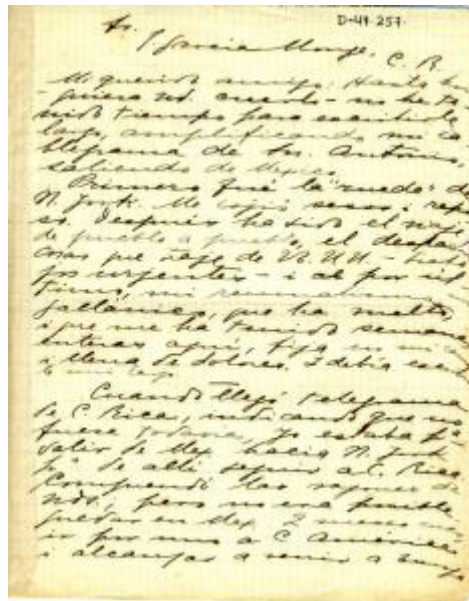 D-49-257
Sr.
J García Monge, C. R.
Mi querido amigo: Hasta hoy
quiera Ud. creerlo - no he te
nido tiempo para escribirle
largo, amplificando mi ca
blegrama de Sn. Antonio,
saliendo de Mexico.
Primero fué la "rueda" de
N. York. Me cogió sesos i repo
so. Después ha sido el viaje
de pueblo a pueblo, el
cosas que traje de EE. UU. - traba
jos urgentes - i al por úl
timo, mi reumatismo
que ha vuelto
i que me ha tenido semanas
enteras aquí, fija en mi
i llena de dolores. I debía
Cuando llegó telegrama
de C. Rica, indicando que no
fuese todavía, yo estaba
salir de Mex. hacia N. York
pa. de allí seguir a C. Rica.
Comprendí las razones de
Uds.; pero no era posible
quedar en Mex. 2 meses
ir por mar a C. América
i alcanzar a venir a